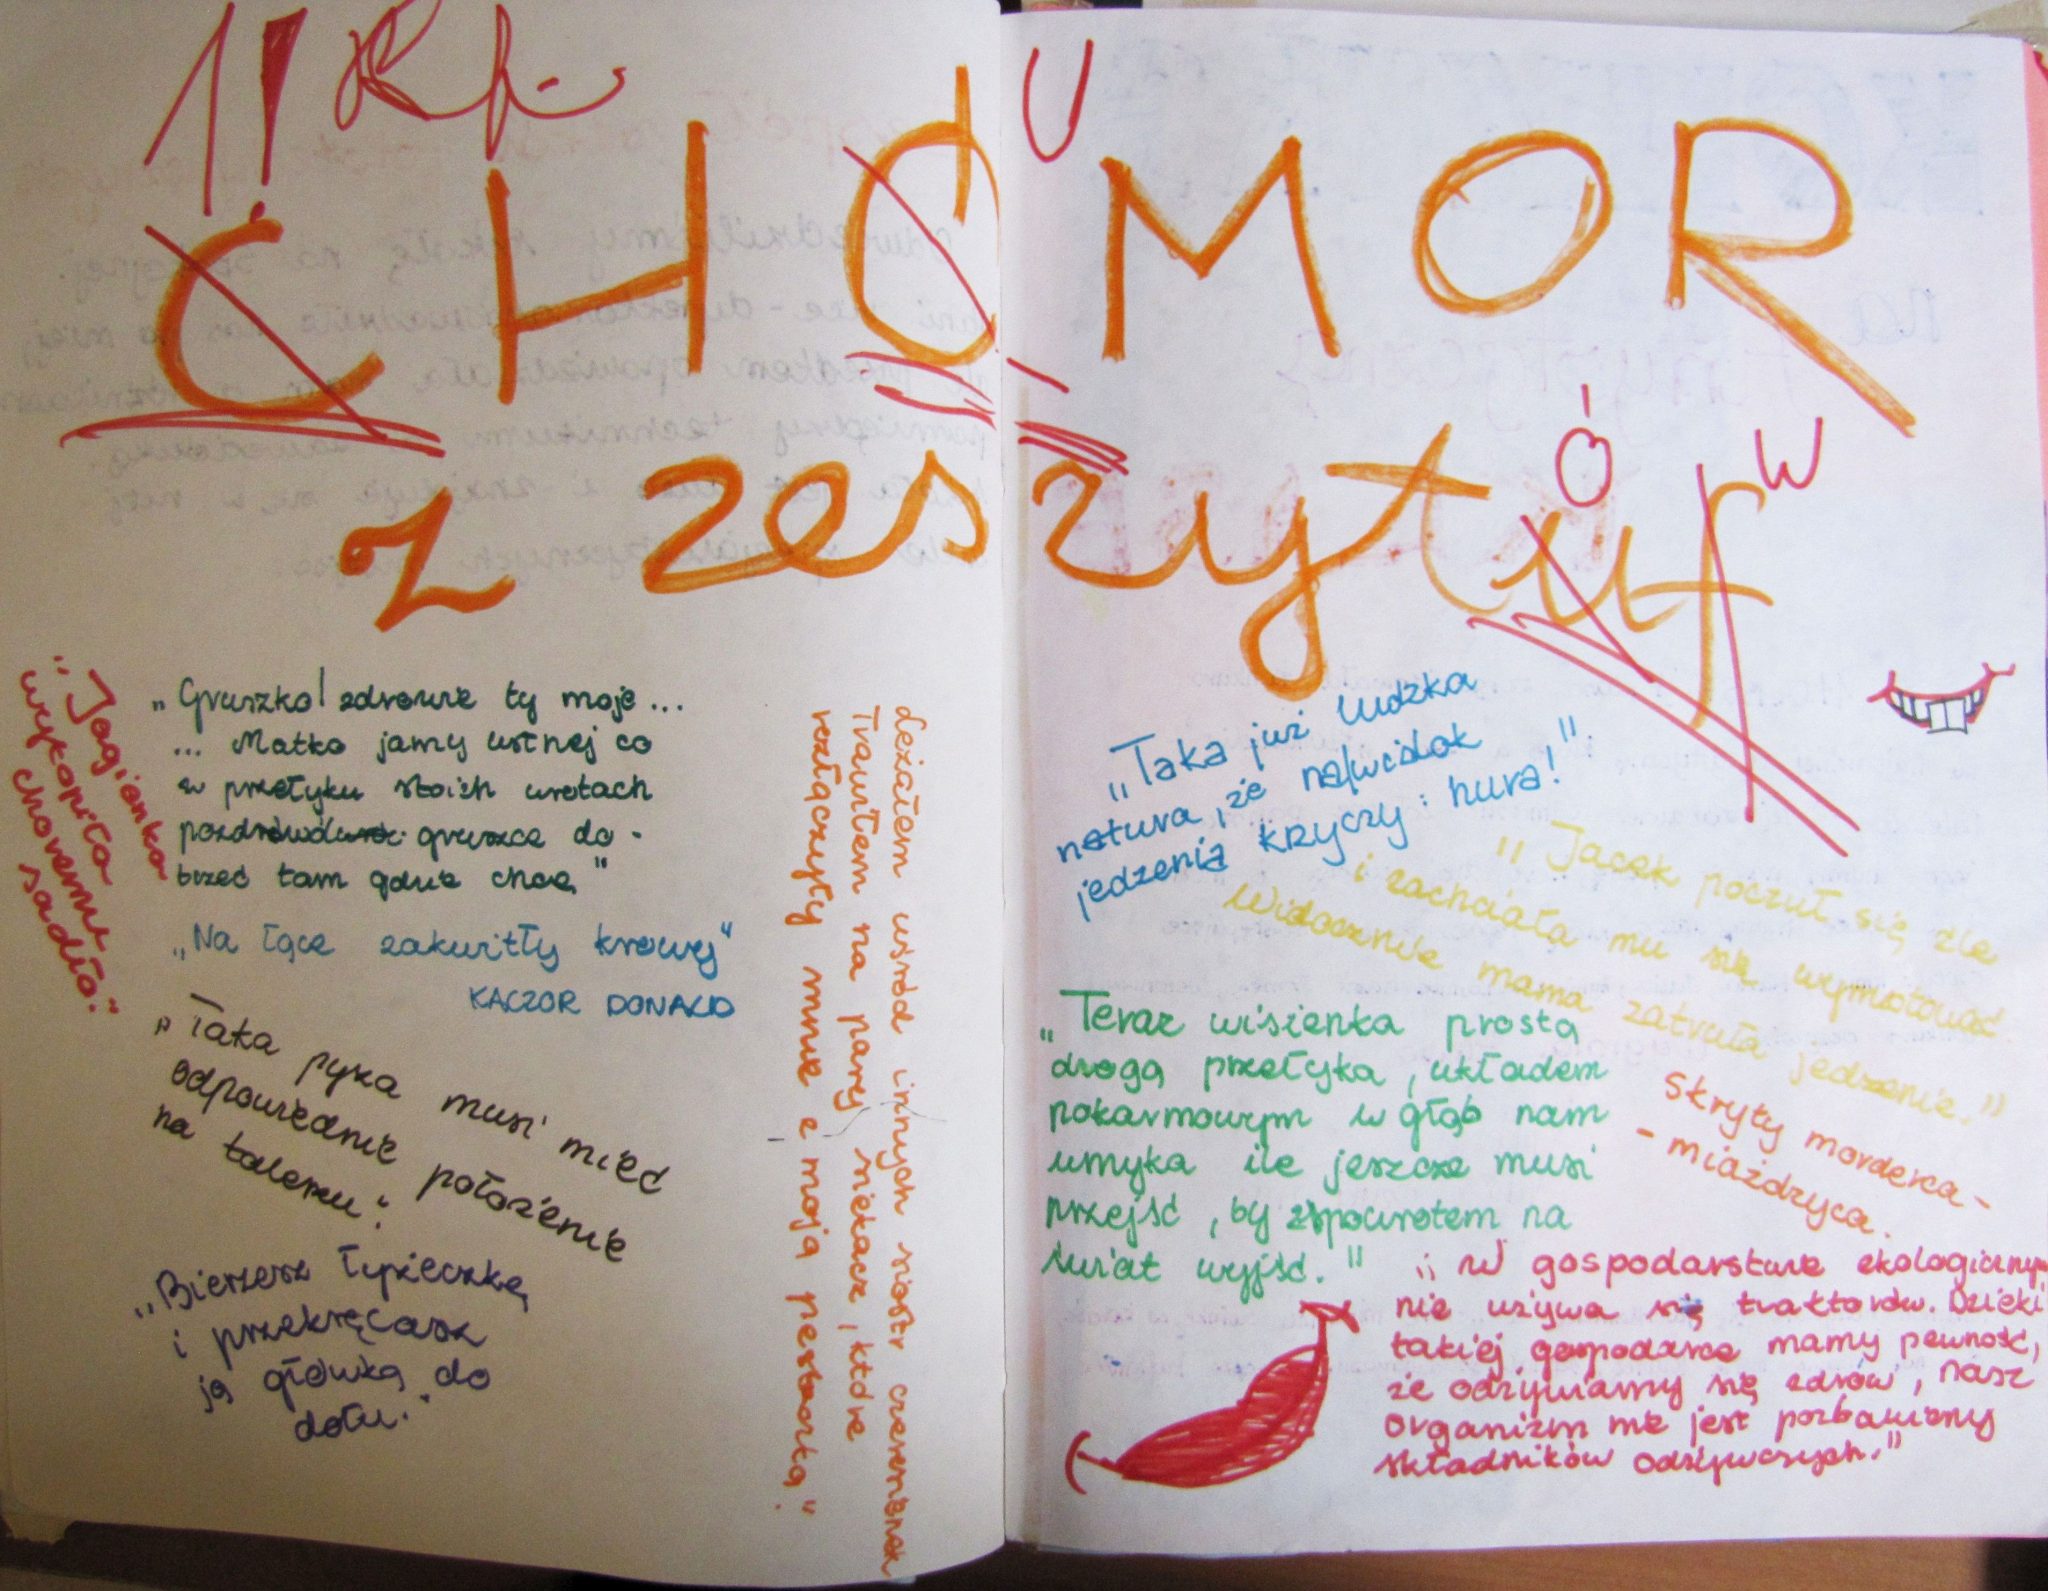 U
CHÓMOR
z zeszytuf
Ó
w
„Jagienka
wykopiła
choremu
sadło."
„Gruszko! zdrowie ty moje...
... Matko jamy ustnej co
w przełyku stoish wrotach
gruszce do-
brzeć tam gdzie chcę"
„Na łące zakwitły krowy"
KACZOR DONALD
„Taka pyza musi mieć
odpowiednie położenie
na talerzu."
„Bierzesz łyżeczkę
i przekręcasz
ją główką do
dołu."
Leżałem wśród innych sióstr czereśniek
Trawiłem na pary siekacz, które
rozłączyły mnie z moją pesteczką"
„Taka już ludzka
natura, że na widok
jedzenia krzyczy: hura!"
„Jacek poczuł się źle
i zachciało mu się wymiotować
Widocznie mama zatruła jedzenie."
„Teraz wisienka prostą
drogą przełyka, układem
pokarmowym w głąb nam
umyka ile jeszcze musi
przejść, by zpowrotem na
świat wyjść."
Skryty morderca-
-miażdzyca.
„W gospodarstwie ekologicznym
nie używa się traktorów. Dzięki
takiej gospodarce mamy pewność,
że odżywiamy się zdrowi, nasz
organizm nie jest pozbawiony
składników odżywczych."